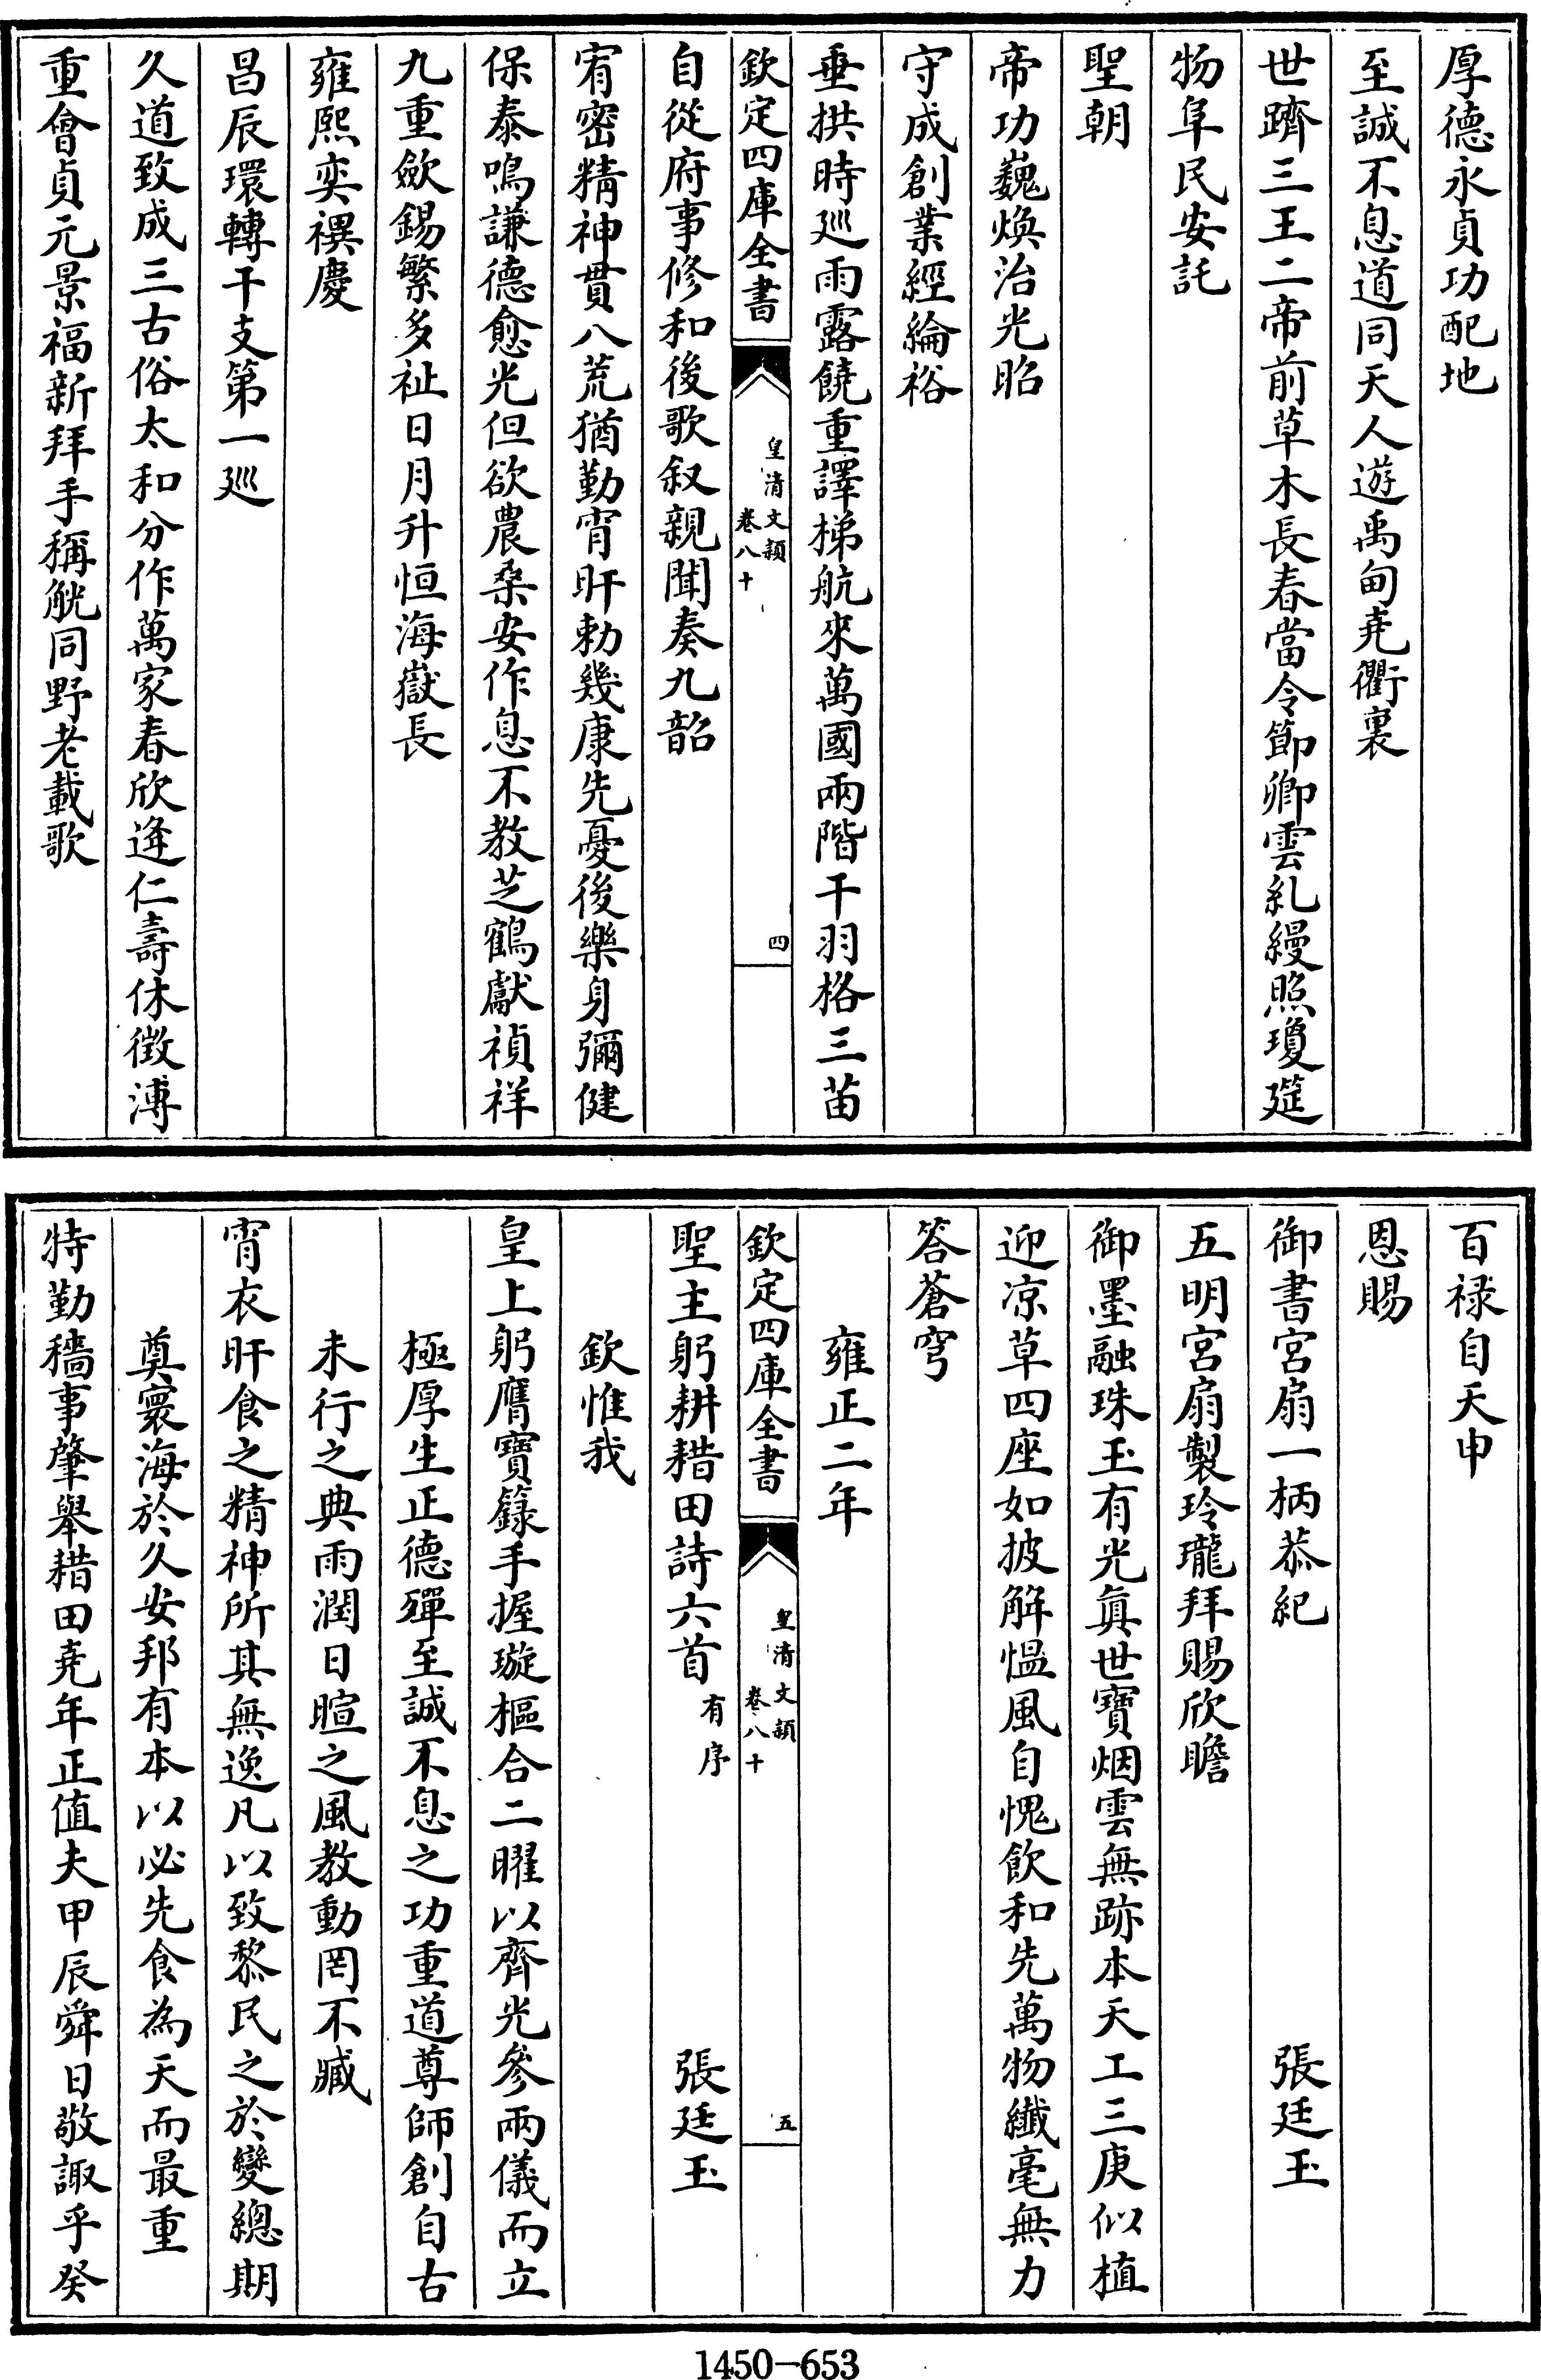 厚德永貞功配地
至誠不息道同天人遊禹甸堯衢裏
世躋三王二帝前草木長春當令節卿雲糺縵照瓊筵
物阜民安託
聖朝
帝功巍煥治光昭
守成創業經綸裕
垂拱時廵雨露饒重譯梯航來萬國兩階干羽格三苗
欽定四庫全書
皇清文頴
卷八十
四
自從府事修和後歌叙親聞奏九韶
宥密精神貫八荒猶勤宵旰勅幾康先憂後樂身彌健
保泰鳴謙德愈光但欲農桑安作息不教芝鶴獻禎祥
九重歛錫繁多祉日月升恒海嶽長
雍熙奕禩慶
昌辰環轉干支第一廵
久道致成三古俗太和分作萬家春欣逢仁壽休徴溥
重會貞元景福新拜手稱觥同野老載歌
百祿自天申
恩賜
御書宮扇一柄恭紀　張廷玉
五明宮扇製玲瓏拜賜欣瞻
御墨融珠玉有光真世寶烟雲無跡本天工三庚似植
迎凉草四座如披解愠風自愧飲和先萬物纎毫無力
答蒼穹
雍正二年
欽定四庫全書
皇清文頴
卷八十
五
聖主躬耕耤田詩六首有序　張廷玉
欽惟我
皇上躬膺寶籙手握璇樞合二曜以齊光參兩儀而立
極厚生正德殫至誠不息之功重道尊師創自古
未行之典雨潤日暄之風教動罔不臧
宵衣旰食之精神所其無逸凡以致黎民之於變總期
奠寰海於久安邦有本以必先食為天而最重
特勤穡事肇舉耤田堯年正值夫甲辰舜日敬諏乎癸
1450-653